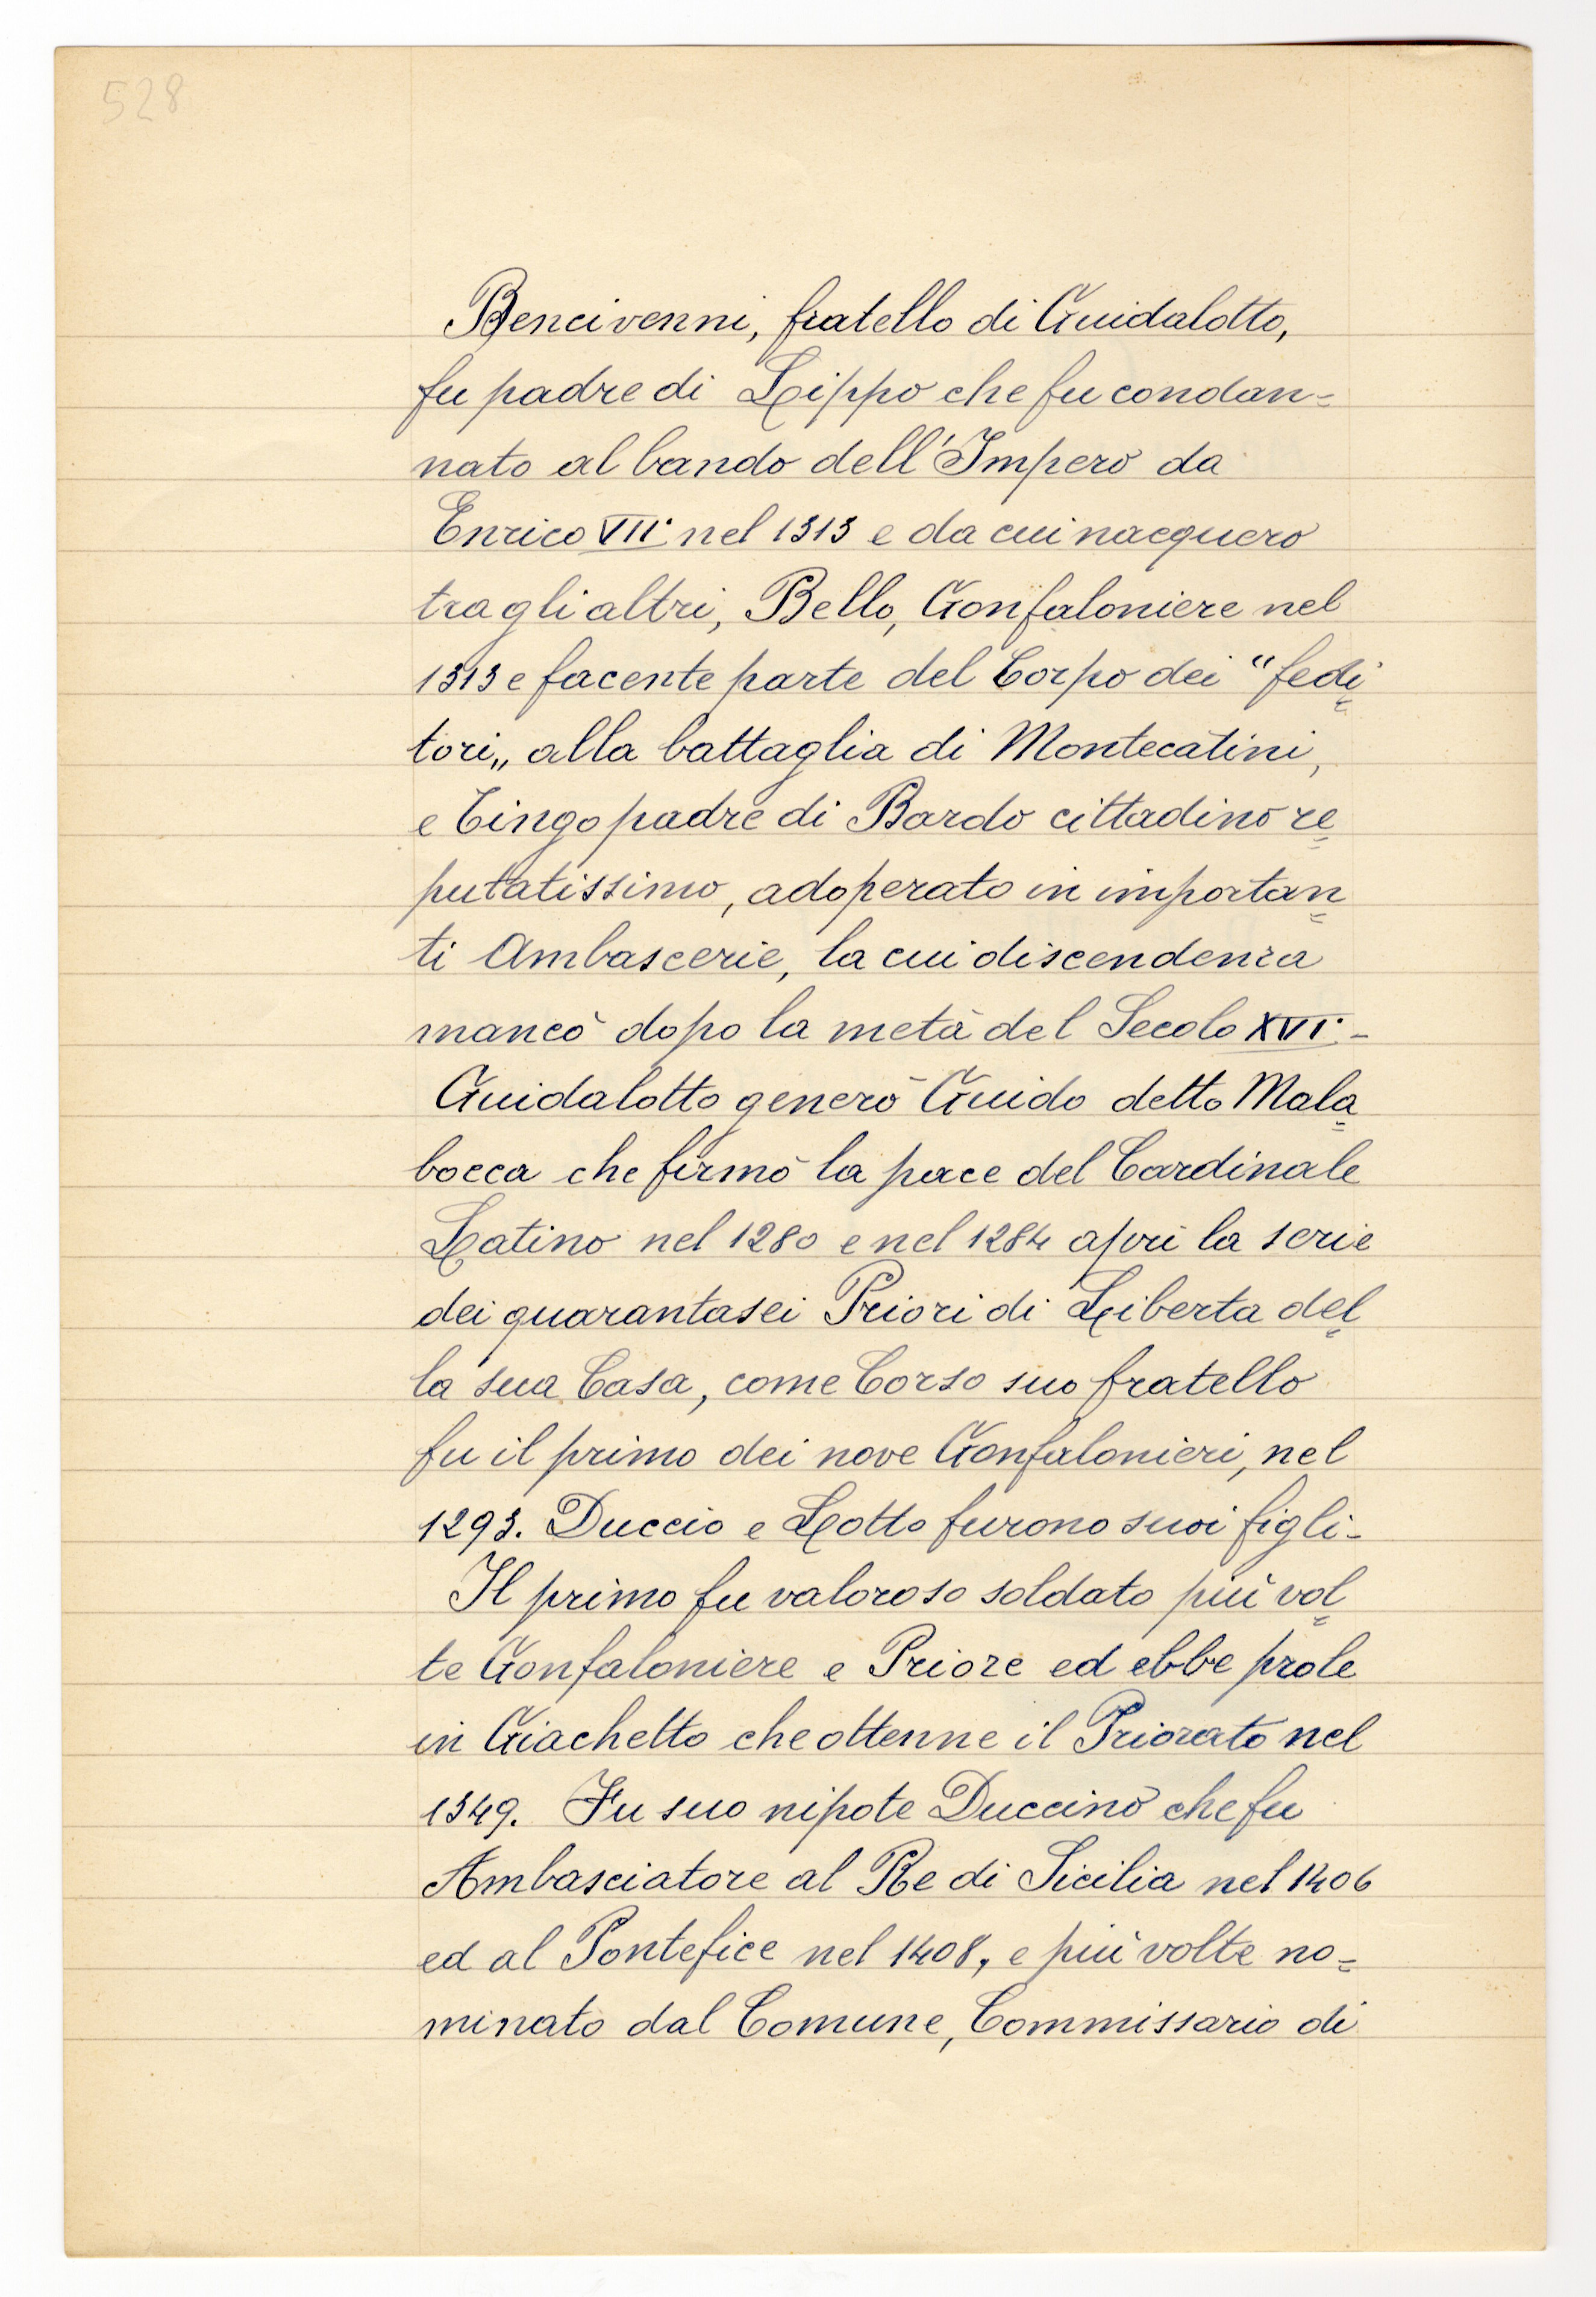 528
Bencivenni, fratello di Guidalotto,
fu padre di Lippo che fu condan=
nato al bando dell'Impero da
Enrico VII° nel 1313 e da cui nacquero
tra gli altri, Bello, Gonfaloniere nel
1313 e facente parte del Corpo dei "fedi=
tori„ alla battaglia di Montecatini,
e Cingo padre di Bardo cittadino re=
putatissimo, adoperato in importan=
ti Ambascerie, la cui discendenza
mancò dopo la metà del Secolo XVI° -
Guidalotto generò Guido detto Mala=
bocca che firmò la pace del Cardinale
Latino nel 1280 e nel 1284 aprì la serie
dei quarantasei Priori di Liberta del=
la sua Casa, come Corso suo fratello
fu il primo dei nove Gonfalonieri, nel
1293. Duccio e Lotto furono suoi figli -
Il primo fu valoroso soldato più vol=
te Gonfaloniere e Priore ed ebbe prole
in Giachetto che ottenne il Priorato nel
1349. Fu suo nipote Duccino che fu
Ambasciatore al Re di Sicilia nel 1406
ed al Pontefice nel 1408, e più volte no=
minato dal Comune, Commissario di